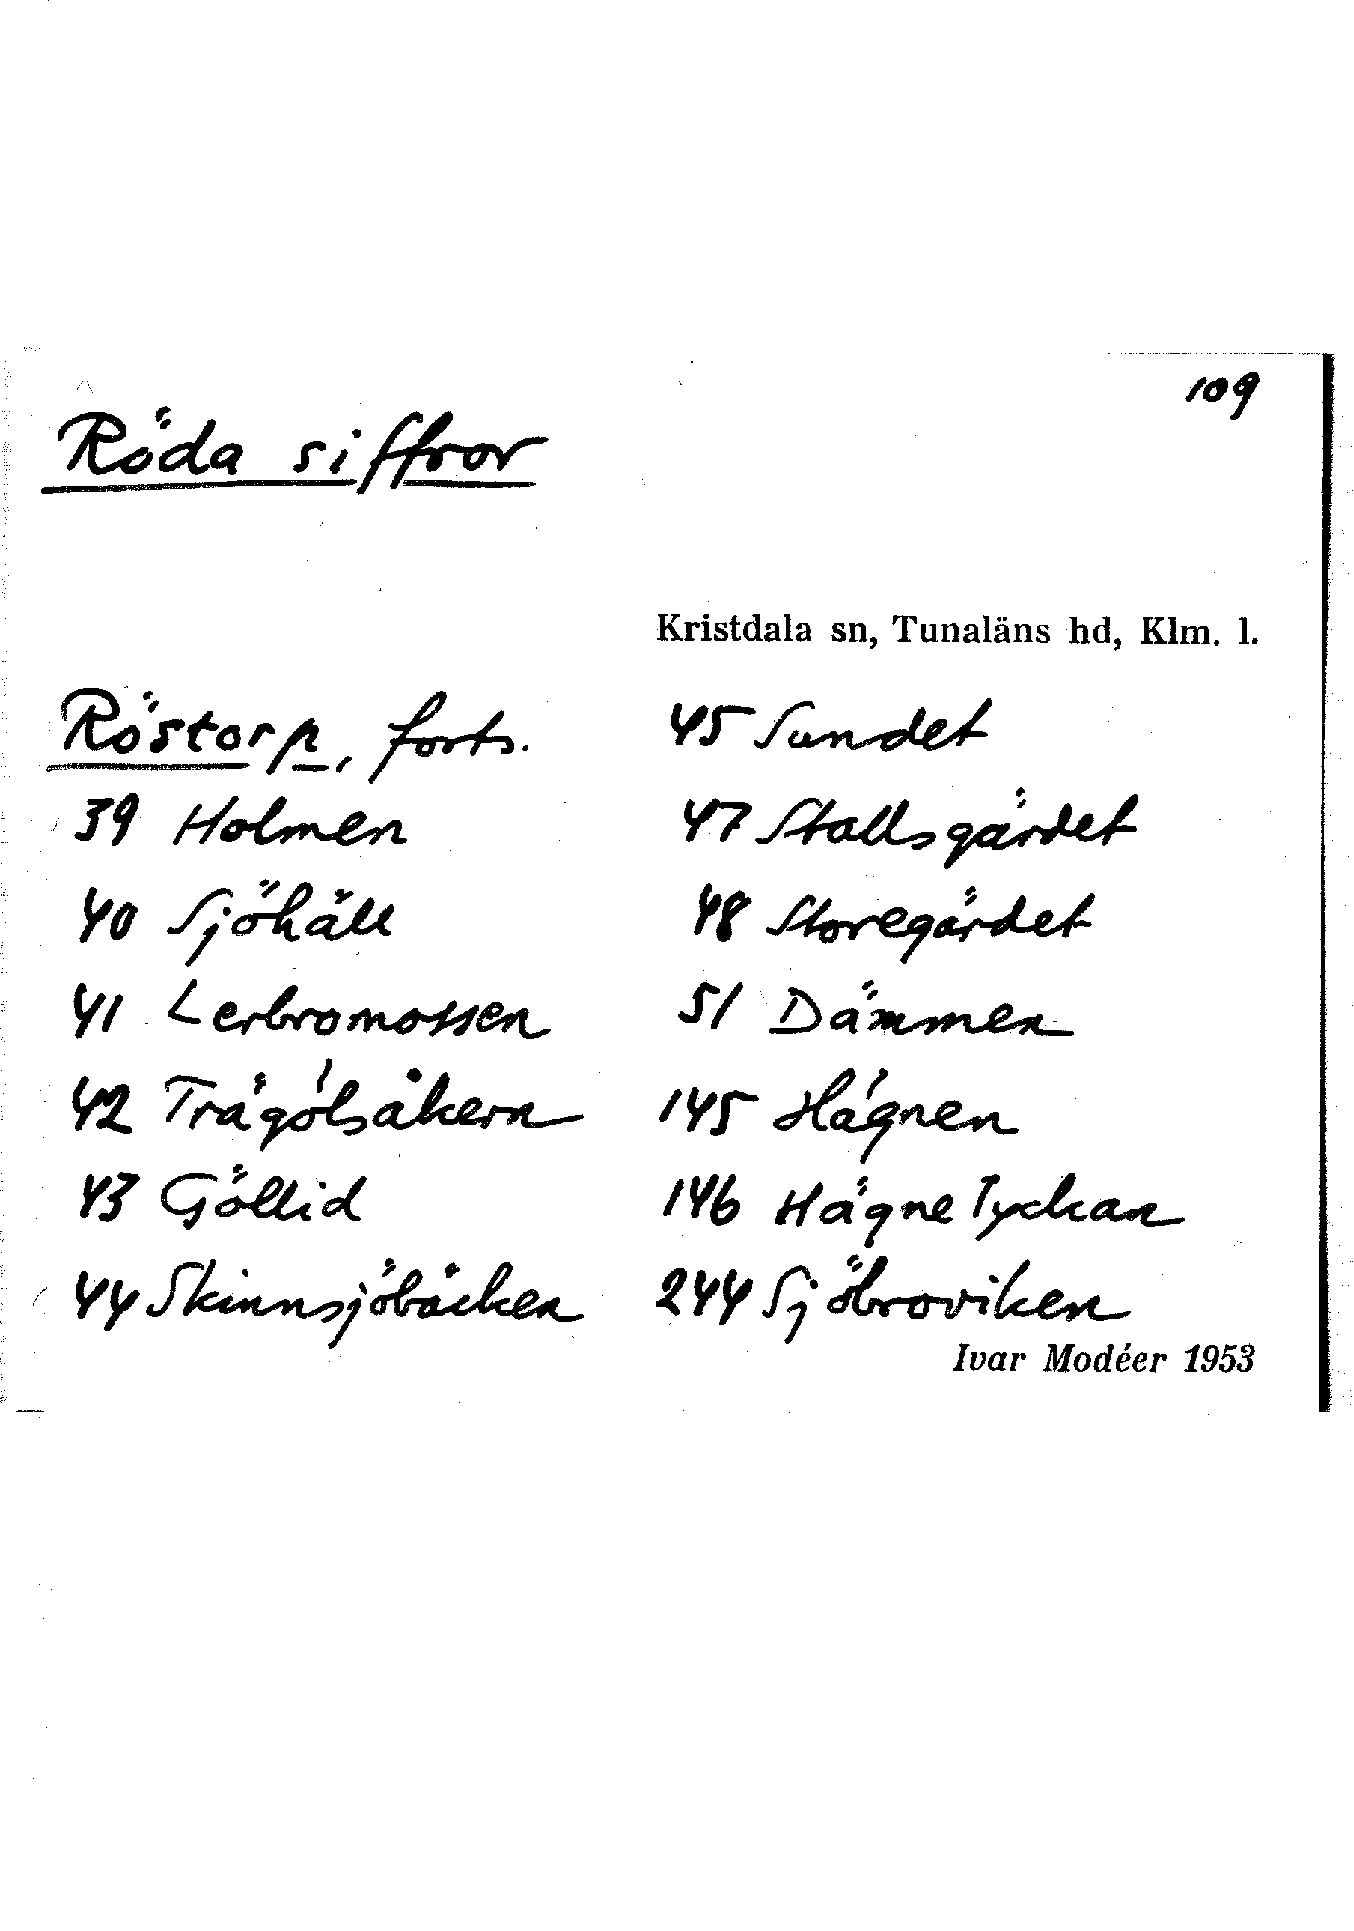 109
Röda siffror
Kristdala sn, Tunaläns hd, Klm. l.
Röstorp, forts.
39 Holmen
40 Sjöhäll
41 Lerbromossen
42 Trägölsåkern
43 Göllid
44 Skinnsjöbäcken
45 Sundet
47 Stallsgärdet
48 Storegärdet
51 Dämmen
145 Hägnen
146 Hägne Tyckan
244 Sjöbroviken
Ivar Modéer 1953